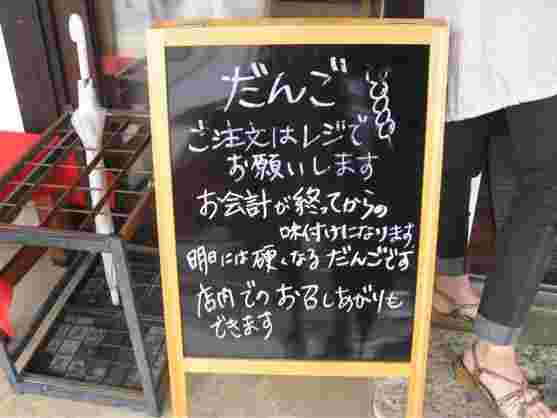 だんご
ご注文はレジで
お願いします
お会計が終ってからの
味付けになります
明日には硬くなるだんごです
店内でのお召しあがりも
できます